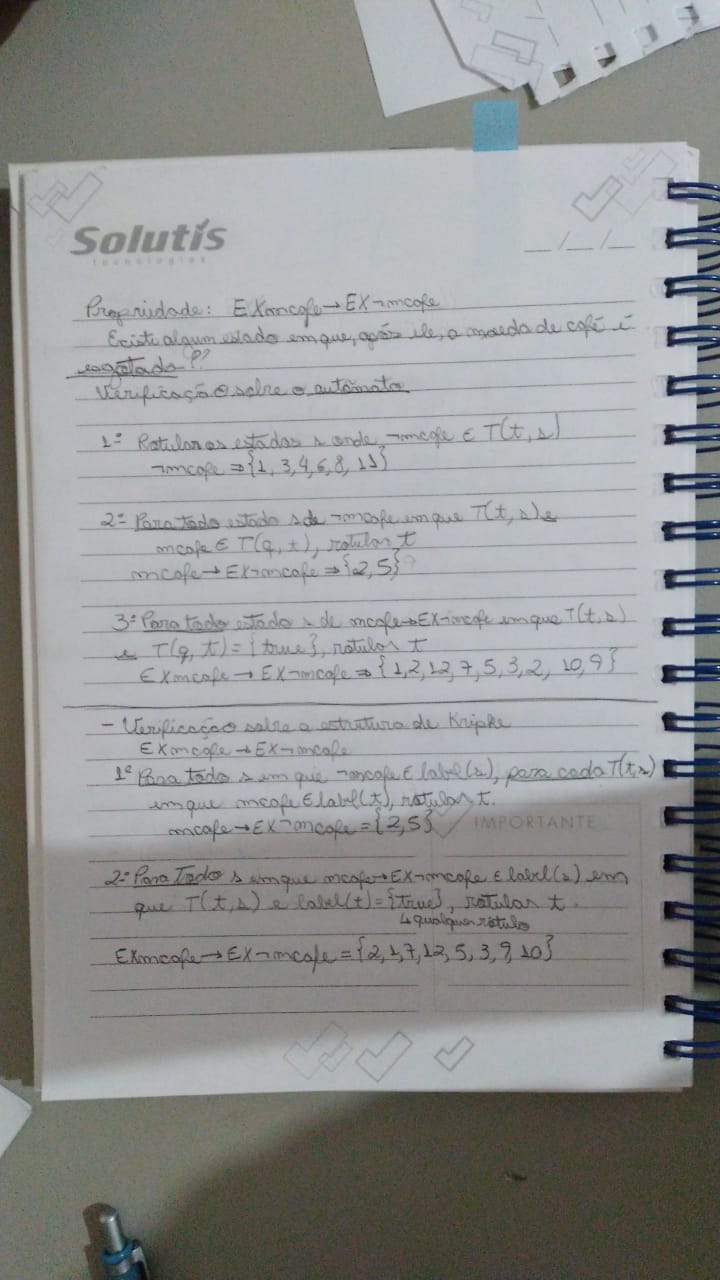 Solutis
tecnologias
__/__/__
Propriedade: EXmcafe→EX¬mcafe
Existe algum estado em que, após ele, a moeda de café é
esgotada?
Verificação sobre o autômato
1º Rotular os estados s onde ¬mcafe ∈ T(t,s)
¬mcafe ⇒ {1,3,4,6,8,11}
2º Para todo estado s de ¬mcafe em que T(t,s) e
mcafe ∈ T(q,t), rotular t
mcafe→EX¬mcafe ⇒ {2,5}
3º Para todo estado s de mcafe→EX¬mcafe em que T(t,s)
e T(q,t)={true}, rotular t
EXmcafe→EX¬mcafe ⇒ {1,2,12,7,5,3,2,10,9}
- Verificação sobre a estrutura de Kripke
EXmcafe→EX¬mcafe
1º Para todo s em que ¬mcafe ∈ label(s), para cada T(t,s)
em que mcafe ∈ label(t), rotular t.
mcafe→EX¬mcafe = {2,5}
IMPORTANTE
2º Para Todo s em que mcafe→EX¬mcafe ∈ label(s) em
que T(t,s) e label(t)={true}, rotular t.
↳ qualquer rótulo
EXmcafe→EX¬mcafe = {2,1,7,12,5,3,9,10}